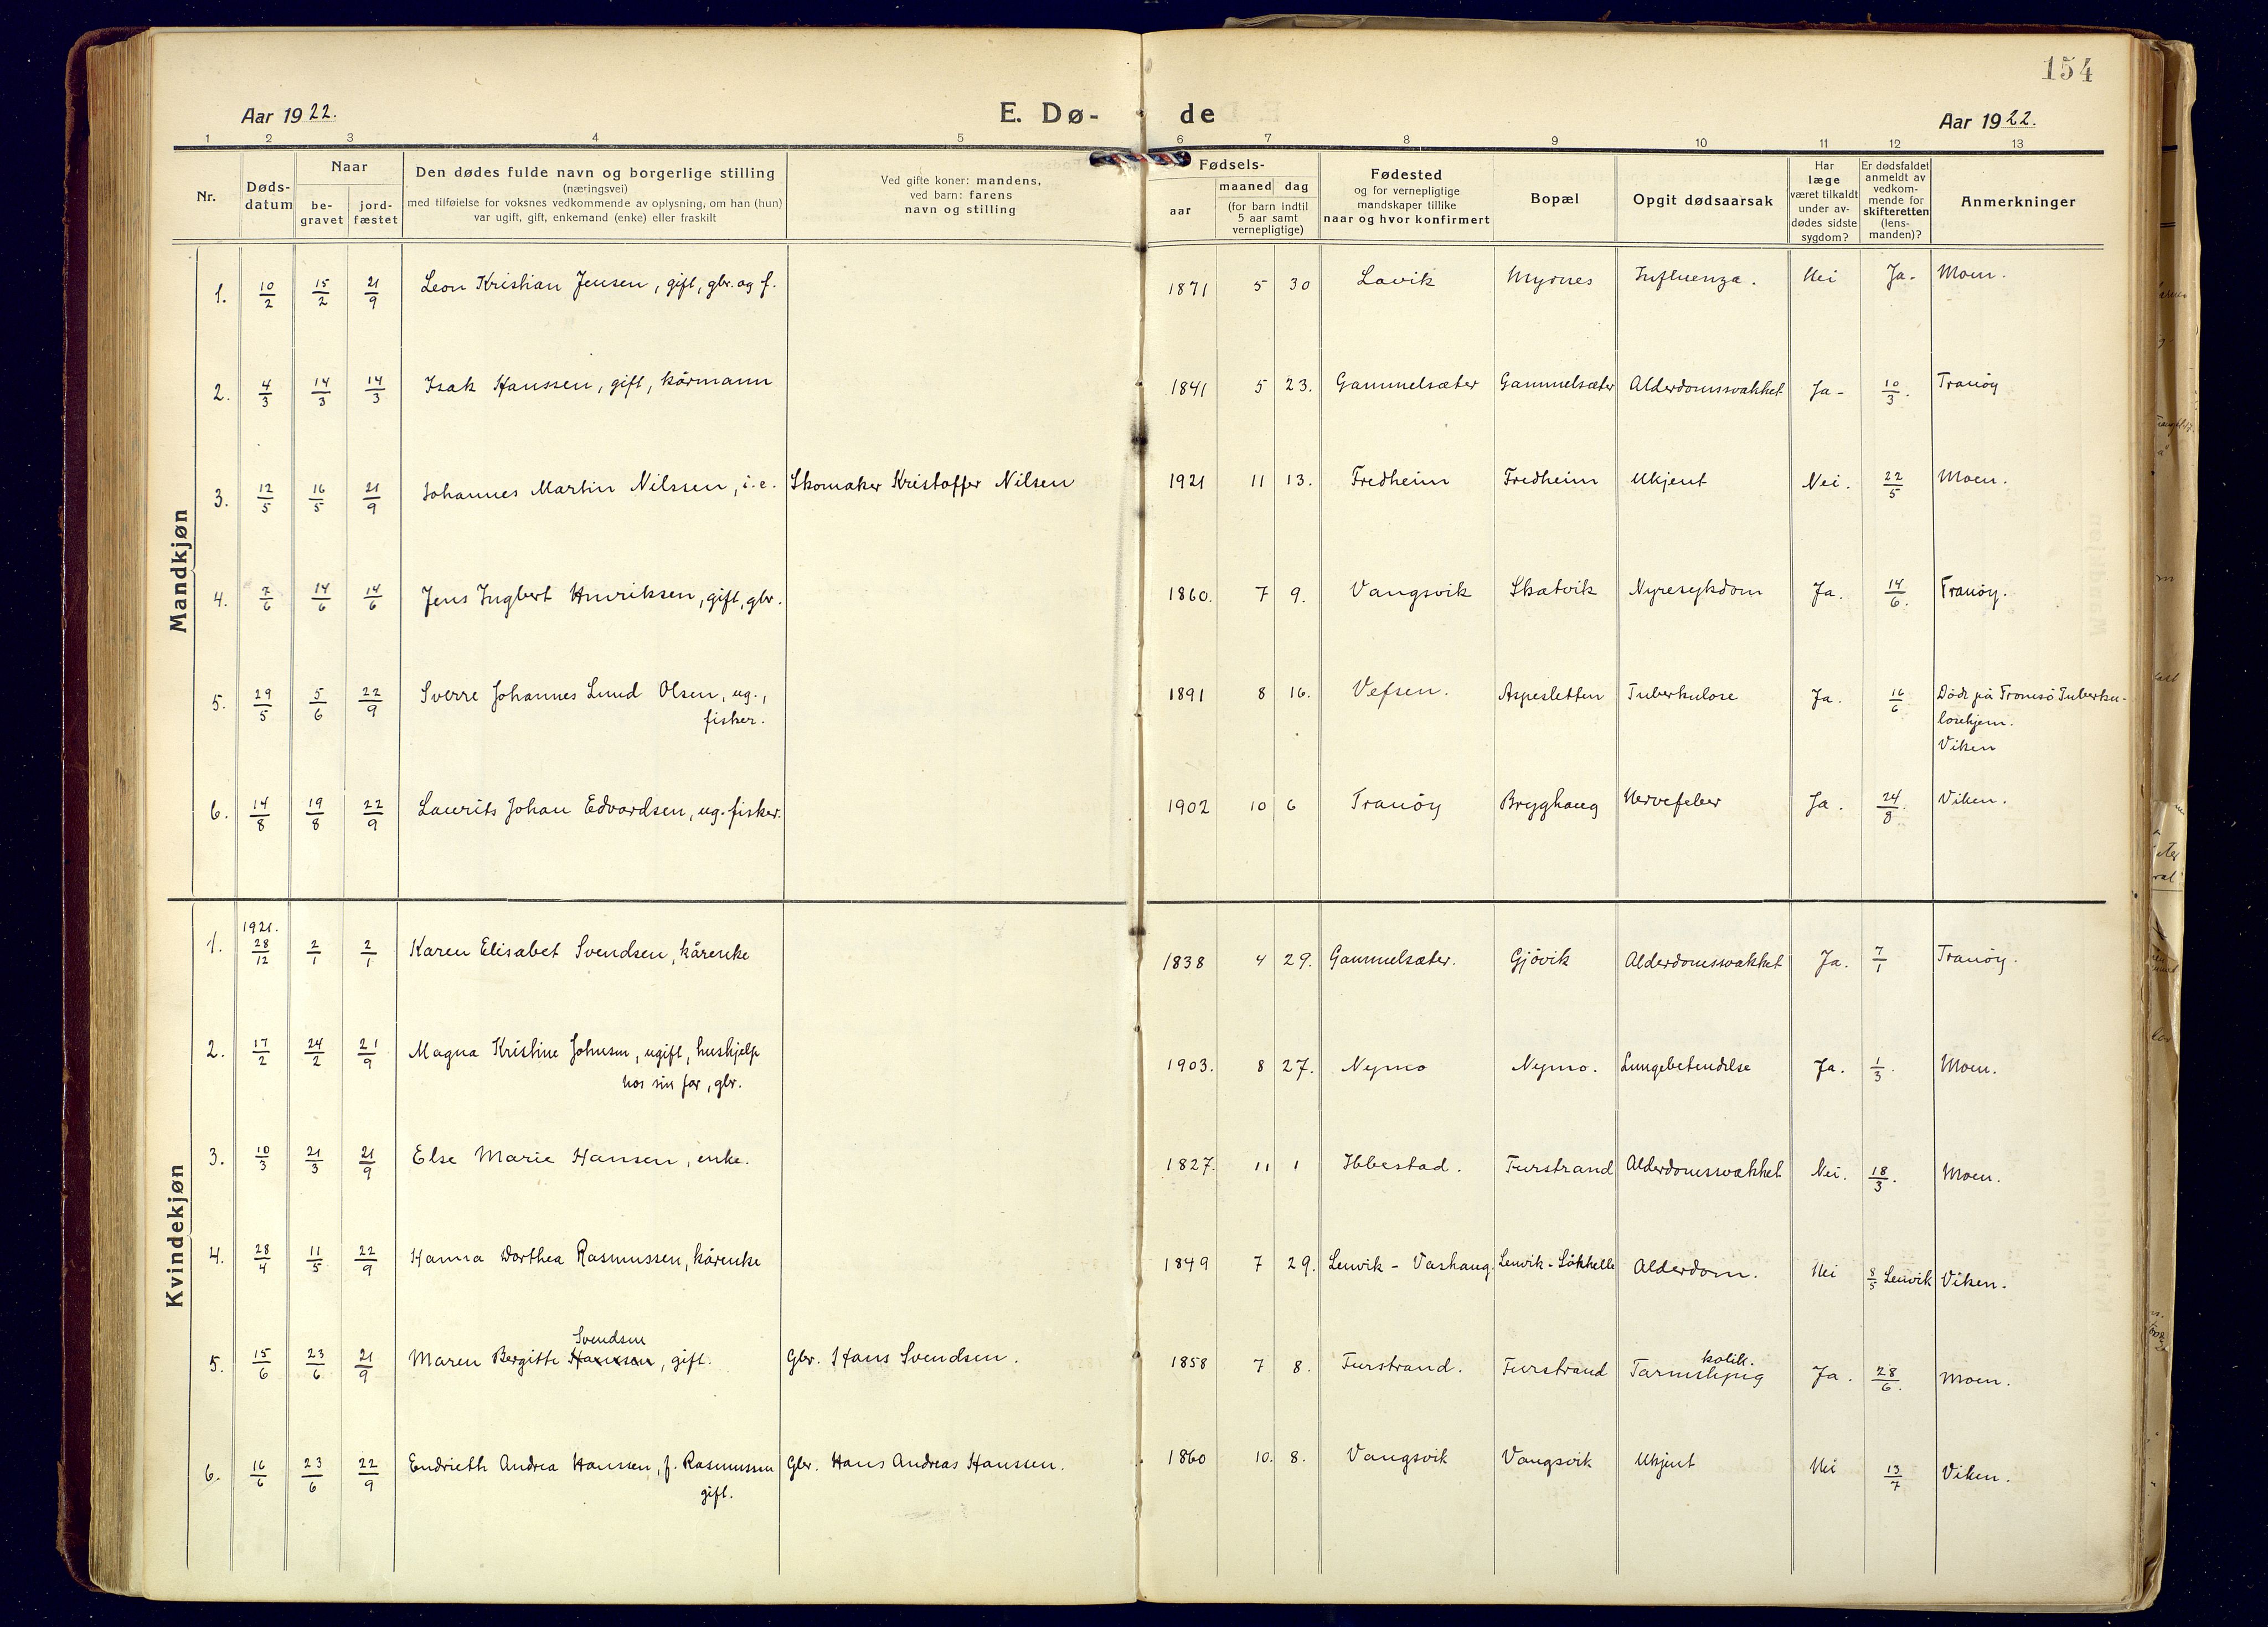 154
Aar 1922.
E. Dø-
de
Aar 1922.
1 2 3 4 5 6 7 8 9 10 11 12 13
Nr.
Døds-
datum
Naar
be-
gravet
jord-
fæstet
Den dødes fulde navn og borgerlige stilling
(næringsvei)
med tilføielse for voksnes vedkommende av oplysning, om han (hun)
var ugift, gift, enkemand (enke) eller fraskilt
Ved gifte koner: mandens,
ved barn: farens
navn og stilling
Fødsels-
aar
maaned dag
(for barn indtil
5 aar samt
vernepligtige)
Fødested
og for vernepligtige
mandskaper tillike
naar og hvor konfirmert
Bopæl
Opgit dødsaarsak
Har
læge
været tilkaldt
under av-
dødes sidste
sygdom?
Er dødsfaldet
anmeldt av
vedkom-
mende for
skifteretten
(lens-
manden)?
Anmerkninger
Mandkjøn
1. 10/2 15/2 21/9 Leon Kristian Jensen, gift, gbr. og f. 1871 5 30 Lavik Myrnes Influenza. Nei Ja. Moen.
2. 4/3 14/3 14/3 Isak Hanssen, gift, kårmann 1841 5 23. Gammelsæter Gammelsæter Alderdomssvakhet Ja- 10/3. Tranöy
3. 12/5 16/5 21/9 Johannes Martin Nilssen, i.e. Skomaker Kristoffer Nilsen 1921 11 13. Fredheim Fredheim Ukjent Nei. 22/5 Moen.
4. 7/6 14/6 14/6 Jens Ingbert Henriksen, gift, gbr. 1860. 7 9. Vangsvik Skatvik Nyresykdom Ja. 14/6. Tranöy.
5. 29/5 5/6 22/9 Sverre Johannes Lund Olsen, ug., 1891 8 16. Vefsen. Aspesletten Tuberkulose Ja. 16/6 Döde på Tromsö Tuberku-
fisker.
losehjem.
Viken
6. 14/8 19/8 22/9 Laurits Johan Edvardsen, ug. fisker. 1902 10 6 Tranöy Brygghaug Nervefeber Ja. 24/8. Viken.
Kvindekjøn
1921.
1. 28/12 2/1 2/1 Karen Elisabet Svendsen, kårenke 1838 4 29. Gammelsæter. Gjövik Alderdomssvakhet Ja. 7/1 Tranöy.
2. 17/2 24/2 21/9 Magna Kristine Johnsen, ugift, hushjelp 1903. 8 27. Nymo Nymo. Lungebetendelse Ja. 1/3. Moen.
hos sin far, gbr.
3. 10/3 21/3 21/9 Else Marie Hansen, enke. 1827. 11 1 Ibbestad. Furstrand Alderdomssvakhet Nei. 18/3. Moen.
4. 28/4 11/5 22/9 Hanna Dorthea Rasmussen, kårenke 1849 7 29. Lenvik - Vashaug. Lenvik - Lökhelle Alderdom. Nei 8/5 Lenvik Viken.
Svendsen
kolik.
5. 15/6 23/6 21/9 Maren Bergitte Hanssen, gift. Gbr. Hans Svendsen. 1858 7 8. Furstrand. Furstrand Tarmslyng Ja. 28/6. Moen.
6. 16/6 23/6 22/9 Endrieth Andrea Hanssen, f. Rasmussen Gbr. Hans Andreas Hanssen. 1860 10. 8. Vangsvik Vangsvik Ukjent Nei 13/7 Viken.
gift.